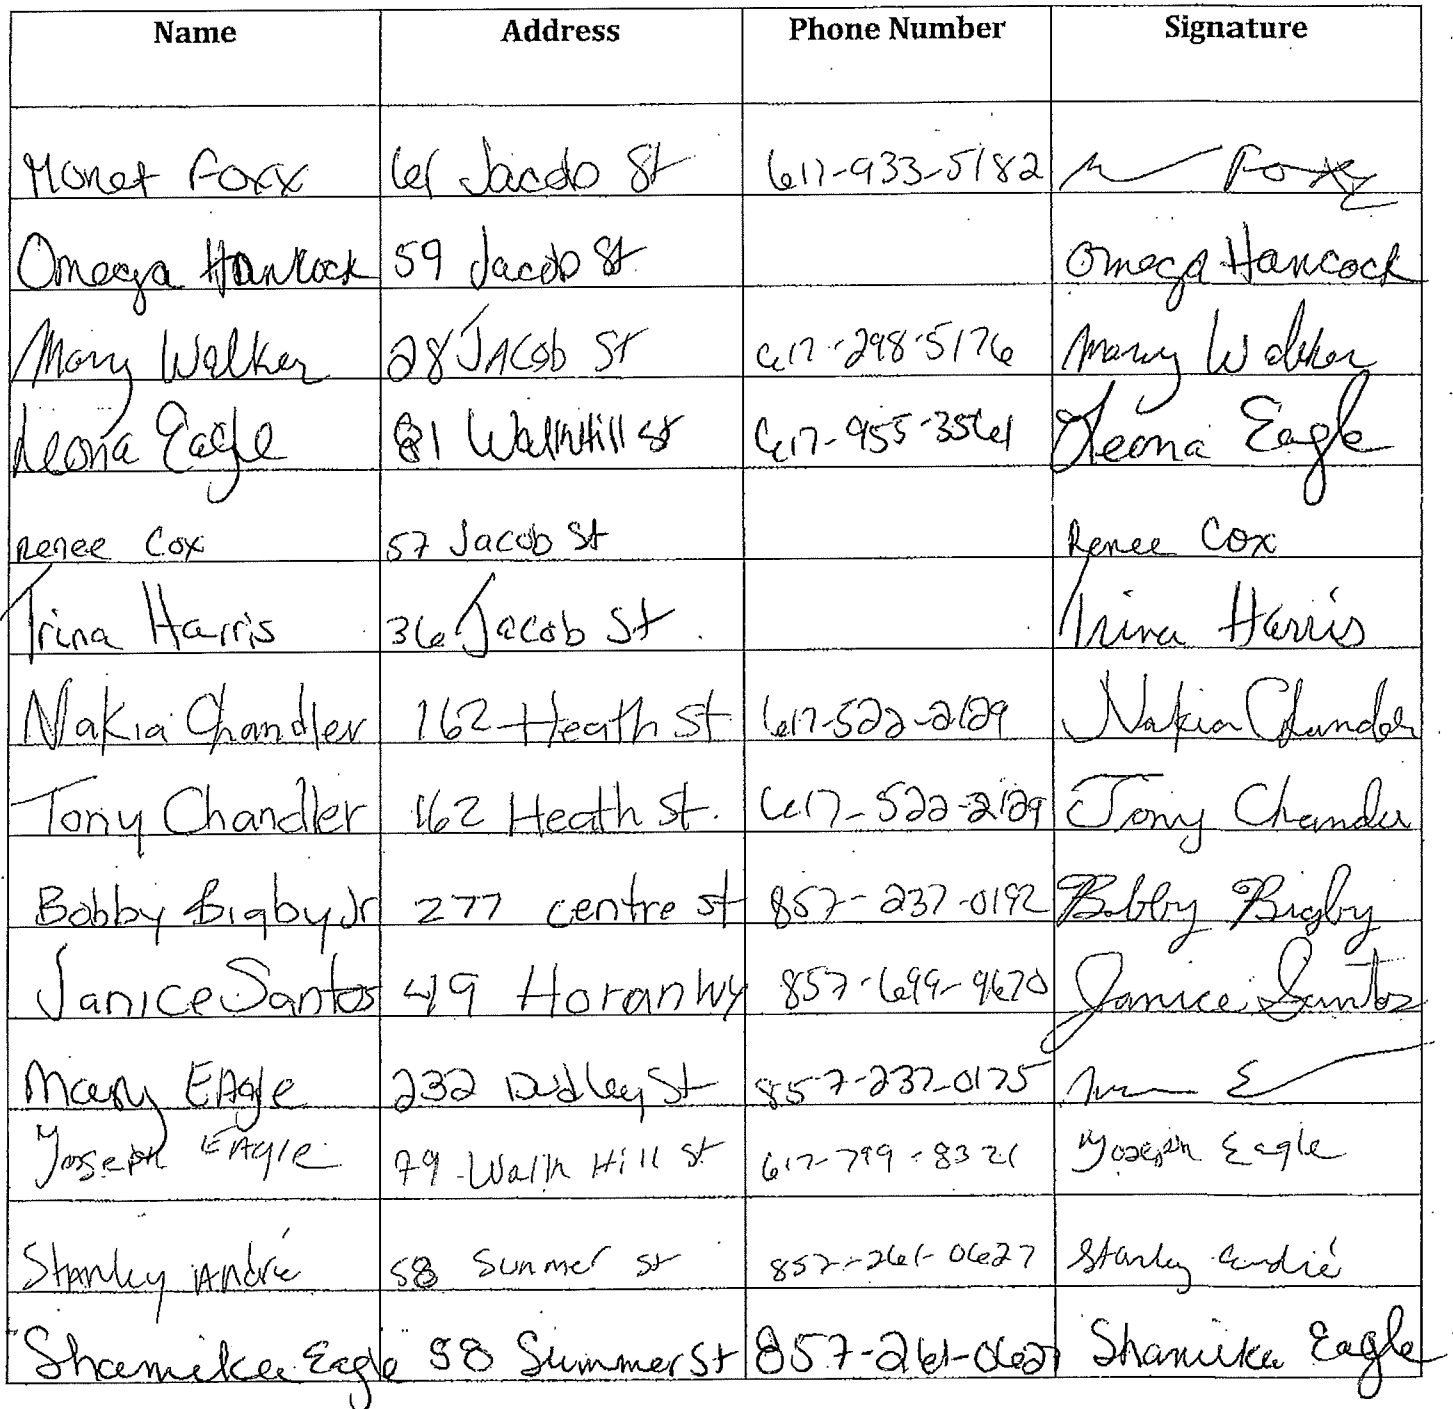 Name Address Phone Number Signature
Monet Foxx 61 Jacob St 617-933-5182 M Foxx
Omega Hancock 59 Jacob St Omega Hancock
Mary Walker 28 JACOB St 617-298-5176 Mary Walker
Leona Eagle 81 Walk Hill st 617-955-3561 Leona Eagle
Renee Cox 57 Jacob St Renee Cox
Trina Harris 36 Jacob St. Trina Harris
Nakia Chandler 162 Heath St 617-522-2129 Nakia Chandler
Tony Chandler 162 Heath St. 617-522-2129 Tony Chandler
Bobby Bigby Jr 277 centre st 857-237-0192 Bobby Bigby
Janice Santos 49 Horan Wy 857-699-9670 Janice Santos
Mary EAgle 232 Dudley St 857-237-0175 E
Joseph EAgle 79 Walk Hill St 617-799-8321 Joseph Eagle
Stanley André 58 Summer St 857-261-0627 Stanley André
Shamika Eagle 58 Summer St 857-261-0627 Shamika Eagle